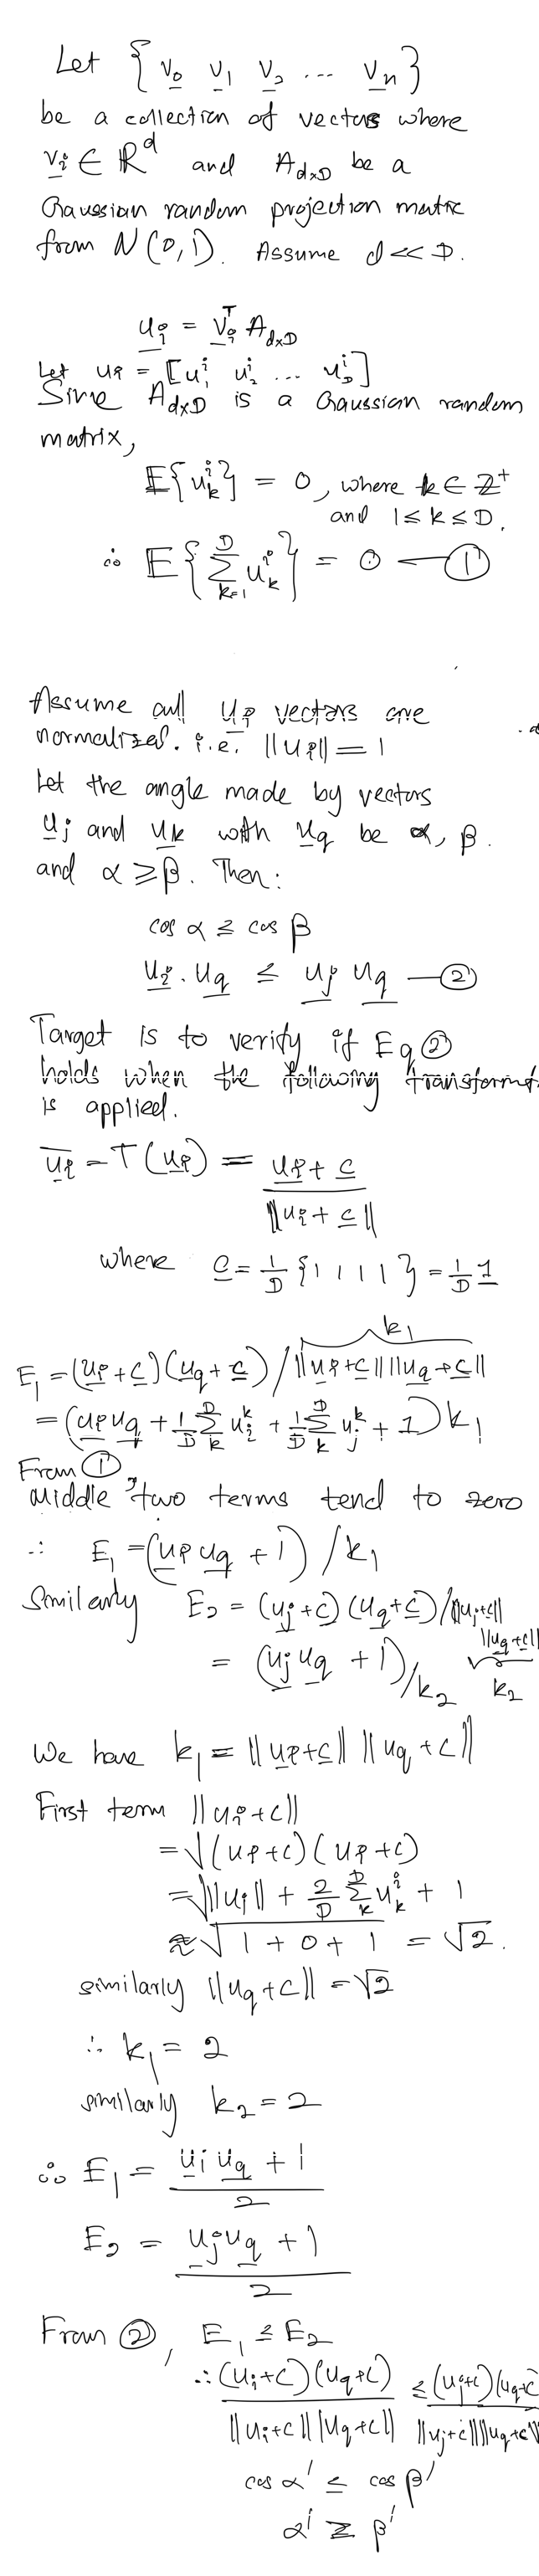 Let { v₀ v₁ v₂ ... vₙ }
be a collection of vectors where
vᵢ ∈ ℝᵈ and A_{d×D} be a
Gaussian random projection matrix
from N(0,1). Assume d << D.
uᵢ = vᵢᵀ A_{d×D}
Let uᵢ = [u₁ⁱ u₂ⁱ ... u_Dⁱ]
Since A_{d×D} is a Gaussian random
matrix,
E{u_kⁱ} = 0, where k ∈ ℤ⁺
and 1 ≤ k ≤ D.
∴ E{ Σ_{k=1}^{D} u_kⁱ } = 0 — ①
Assume all uᵢ vectors are
normalized. i.e. ||uᵢ|| = 1
Let the angle made by vectors
uⱼ and u_k with u_q be α, β.
and α ≥ β. Then:
cos α ≤ cos β
uᵢ . u_q ≤ uⱼ u_q — ②
Target is to verify if Eq ②
holds when the following transformt.
is applied.
ūᵢ = T(uᵢ) = (uᵢ + c) / ||uᵢ + c||
where c = 1/D {1 1 1 1} = 1/D 1
E₁ = (uᵢ + c)(u_q + c) / ||uᵢ + c|| ||u_q + c|| k₁
= (uᵢ u_q + 1/D Σ_k^D uᵢᵏ + 1/D Σ_k^D uⱼᵏ + 1) k₁
From ①,
middle two terms tend to zero
∴ E₁ = (uᵢ u_q + 1) / k₁
Similarly E₂ = (uⱼ + c)(u_q + c) / ||uⱼ + c|| ||u_q + c||
= (uⱼ u_q + 1) / k₂ k₂
We have k₁ = ||uᵢ + c|| ||u_q + c||
First term ||uᵢ + c||
= √(uᵢ + c)(uᵢ + c)
= √||uᵢ|| + 2/D Σ_k^D u_kⁱ + 1
≈ √1 + 0 + 1 = √2.
similarly ||u_q + c|| = √2
∴ k₁ = 2
similarly k₂ = 2
∴ E₁ = (uᵢ u_q + 1) / 2
E₂ = (uⱼ u_q + 1) / 2
From ②, E₁ ≤ E₂
∴ (uᵢ + c)(u_q + c) / ||uᵢ + c|| ||u_q + c|| ≤ (uⱼ + c)(u_q + c) / ||uⱼ + c|| ||u_q + c||
cos α' ≤ cos β'
α' ≥ β'